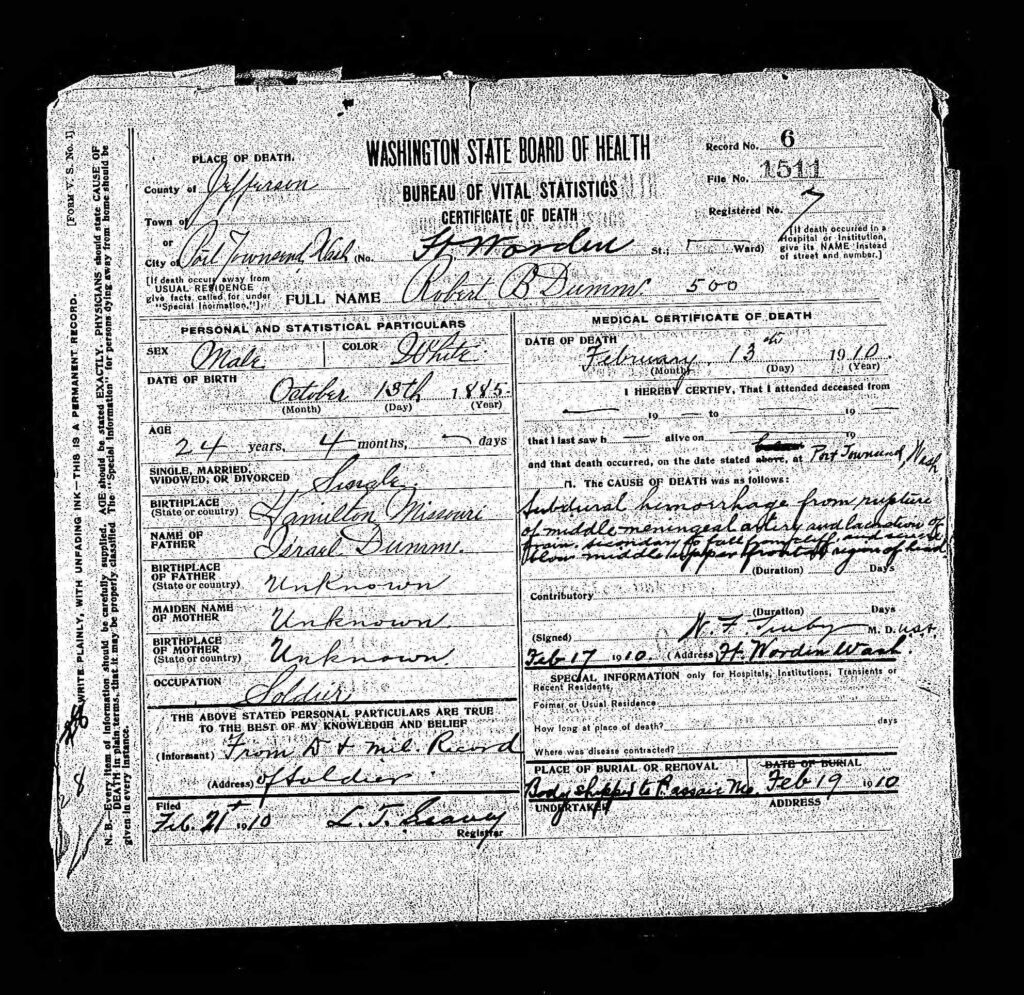 [FORM V. S. No. 1]
WRITE PLAINLY, WITH UNFADING INK—THIS IS A PERMANENT RECORD.
N. B.—Every item of information should be carefully supplied. AGE should be stated EXACTLY. PHYSICIANS should state CAUSE OF
DEATH in plain terms, that it may be properly classified. The "Special Information" for persons dying away from home should be
given in every instance.
28
WASHINGTON STATE BOARD OF HEALTH
BUREAU OF VITAL STATISTICS
CERTIFICATE OF DEATH
Record No. 6
File No. 1511
Registered No. 7
[If death occurred in a
Hospital or Institution,
give its NAME instead
of street and number.]
PLACE OF DEATH.
County of Jefferson
Town of
or
City of Port Townsend, Wash (No. Ft Worden St.; Ward)
[If death occurs away from
USUAL RESIDENCE
give facts called for under
"Special Information."]
FULL NAME Robert B Dumm 500
PERSONAL AND STATISTICAL PARTICULARS
SEX Male COLOR White
DATE OF BIRTH
October 13th 1885
(Month) (Day) (Year)
AGE
24 years, 4 months, — days
SINGLE, MARRIED,
WIDOWED, OR DIVORCED Single
BIRTHPLACE
(State or country) Hamilton Missouri
NAME OF
FATHER Israel Dumm
BIRTHPLACE
OF FATHER
(State or country) Unknown
MAIDEN NAME
OF MOTHER Unknown
BIRTHPLACE
OF MOTHER
(State or country) Unknown
OCCUPATION Soldier
THE ABOVE STATED PERSONAL PARTICULARS ARE TRUE
TO THE BEST OF MY KNOWLEDGE AND BELIEF
(Informant) From D & mil. Record
(Address) of Soldier
Filed
Feb. 21 1910 L. T. Seavey
Registrar
MEDICAL CERTIFICATE OF DEATH
DATE OF DEATH
February 13th 1910.
(Month) (Day) (Year)
I HEREBY CERTIFY, That I attended deceased from
— 19 — to — 19 —
that I last saw h — alive on — 19
and that death occurred, on the date stated above, at Port Townsend, Wash
m. The CAUSE OF DEATH was as follows:
Subdural hemorrhage from rupture
of middle meningeal artery and laceration of
brain, secondary to fall from cliff, and severe
blow middle upper frontal region of head
(Duration) Days
Contributory
(Duration) Days
(Signed) W. F. Truby M. D. USA.
Feb 17 1910. (Address) Ft. Worden Wash.
SPECIAL INFORMATION only for Hospitals, Institutions, Transients or
Recent Residents.
Former or Usual Residence
How long at place of death? days
Where was disease contracted?
PLACE OF BURIAL OR REMOVAL DATE OF BURIAL
Body shipped to Feb 19 1910
UNDERTAKER ADDRESS